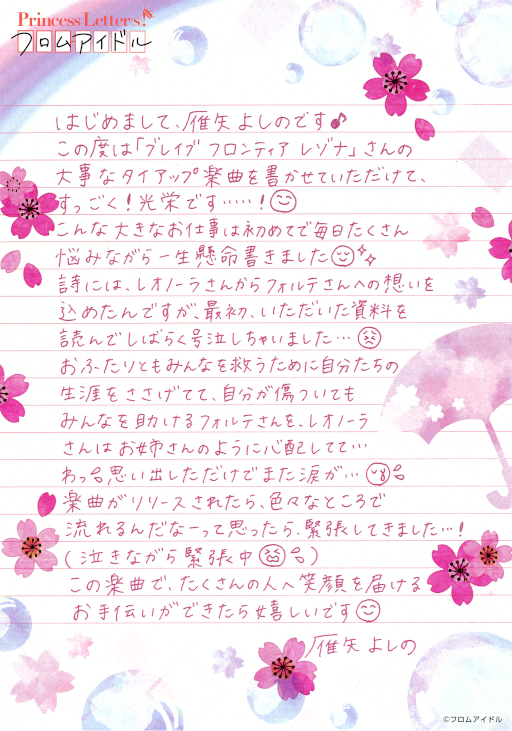 Princess Letter(s)!
フロムアイドル
はじめまして、雁矢よしのです♪
この度は「ブレイブ フロンティア レゾナ」さんの
大事なタイアップ楽曲を書かせていただけて、
すっごく！光栄です……！
こんな大きなお仕事は初めてで毎日たくさん
悩みながら一生懸命書きました
詩には、レオノーラさんからフォルテさんへの想いを
込めたんですが、最初、いただいた資料を
読んでしばらく号泣しちゃいました…
おふたりともみんなを救うために自分たちの
生涯をささげてて、自分が傷ついても
みんなを助けるフォルテさんを、レオノーラ
さんはお姉さんのように心配してて…
わっ思い出しただけでまた涙が…
楽曲がリリースされたら、色々なところで
流れるんだなーって思ったら、緊張してきました…！
(泣きながら緊張中)
この楽曲で、たくさんの人へ笑顔を届ける
お手伝いができたら嬉しいです
雁矢よしの
©フロムアイドル